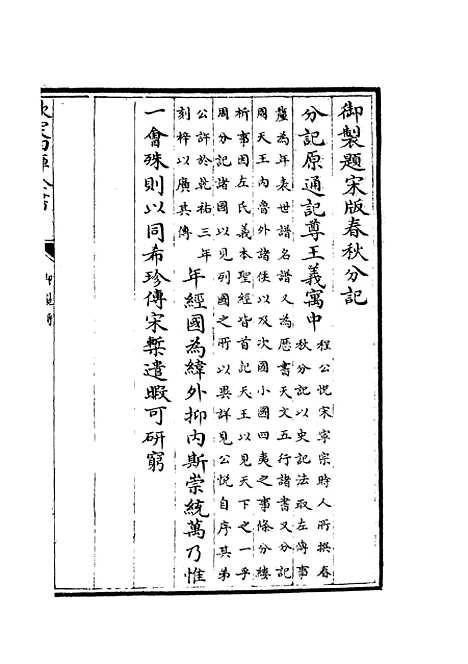 御製題宋版春秋分記
分記原通記尊王義寓中
程公說宋寧宗時人所撰春
秋分記以史記法取左傳事
釐為年表世譜名譜又為厯書天文五行諸書又分記
周天王內魯外諸侯以及次國小國四夷之事條分縷
析事因左氏義本聖經皆首記天王以見天下之一乎
周分記諸國以見列國之所以異詳見公說自序其弟
公許於淳祐三年
刻梓以廣其傳
年經國為緯外抑內斯崇統萬乃惟
一會殊則以同希珍傳宋槧遺暇可研窮
欽定四庫全書